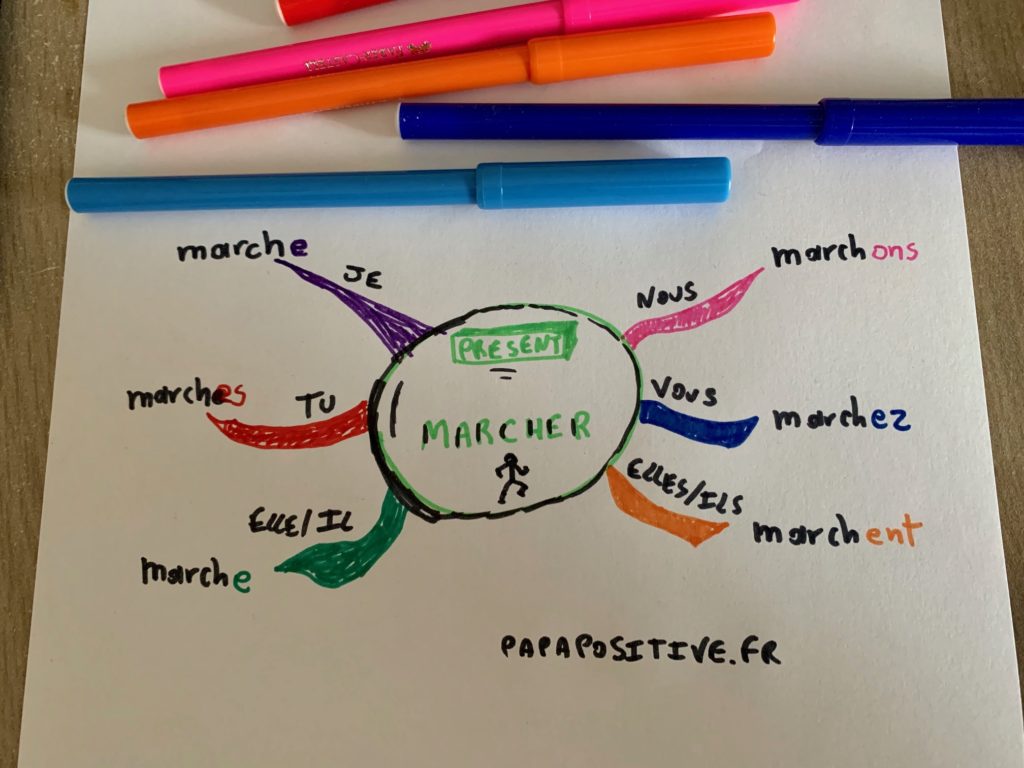 marche
JE
TU
marches
ELLE/IL
marche
PRESENT
MARCHER
NOUS
marchons
VOUS
marchez
ELLES/ILS
marchent
PAPAPOSITIVE.FR